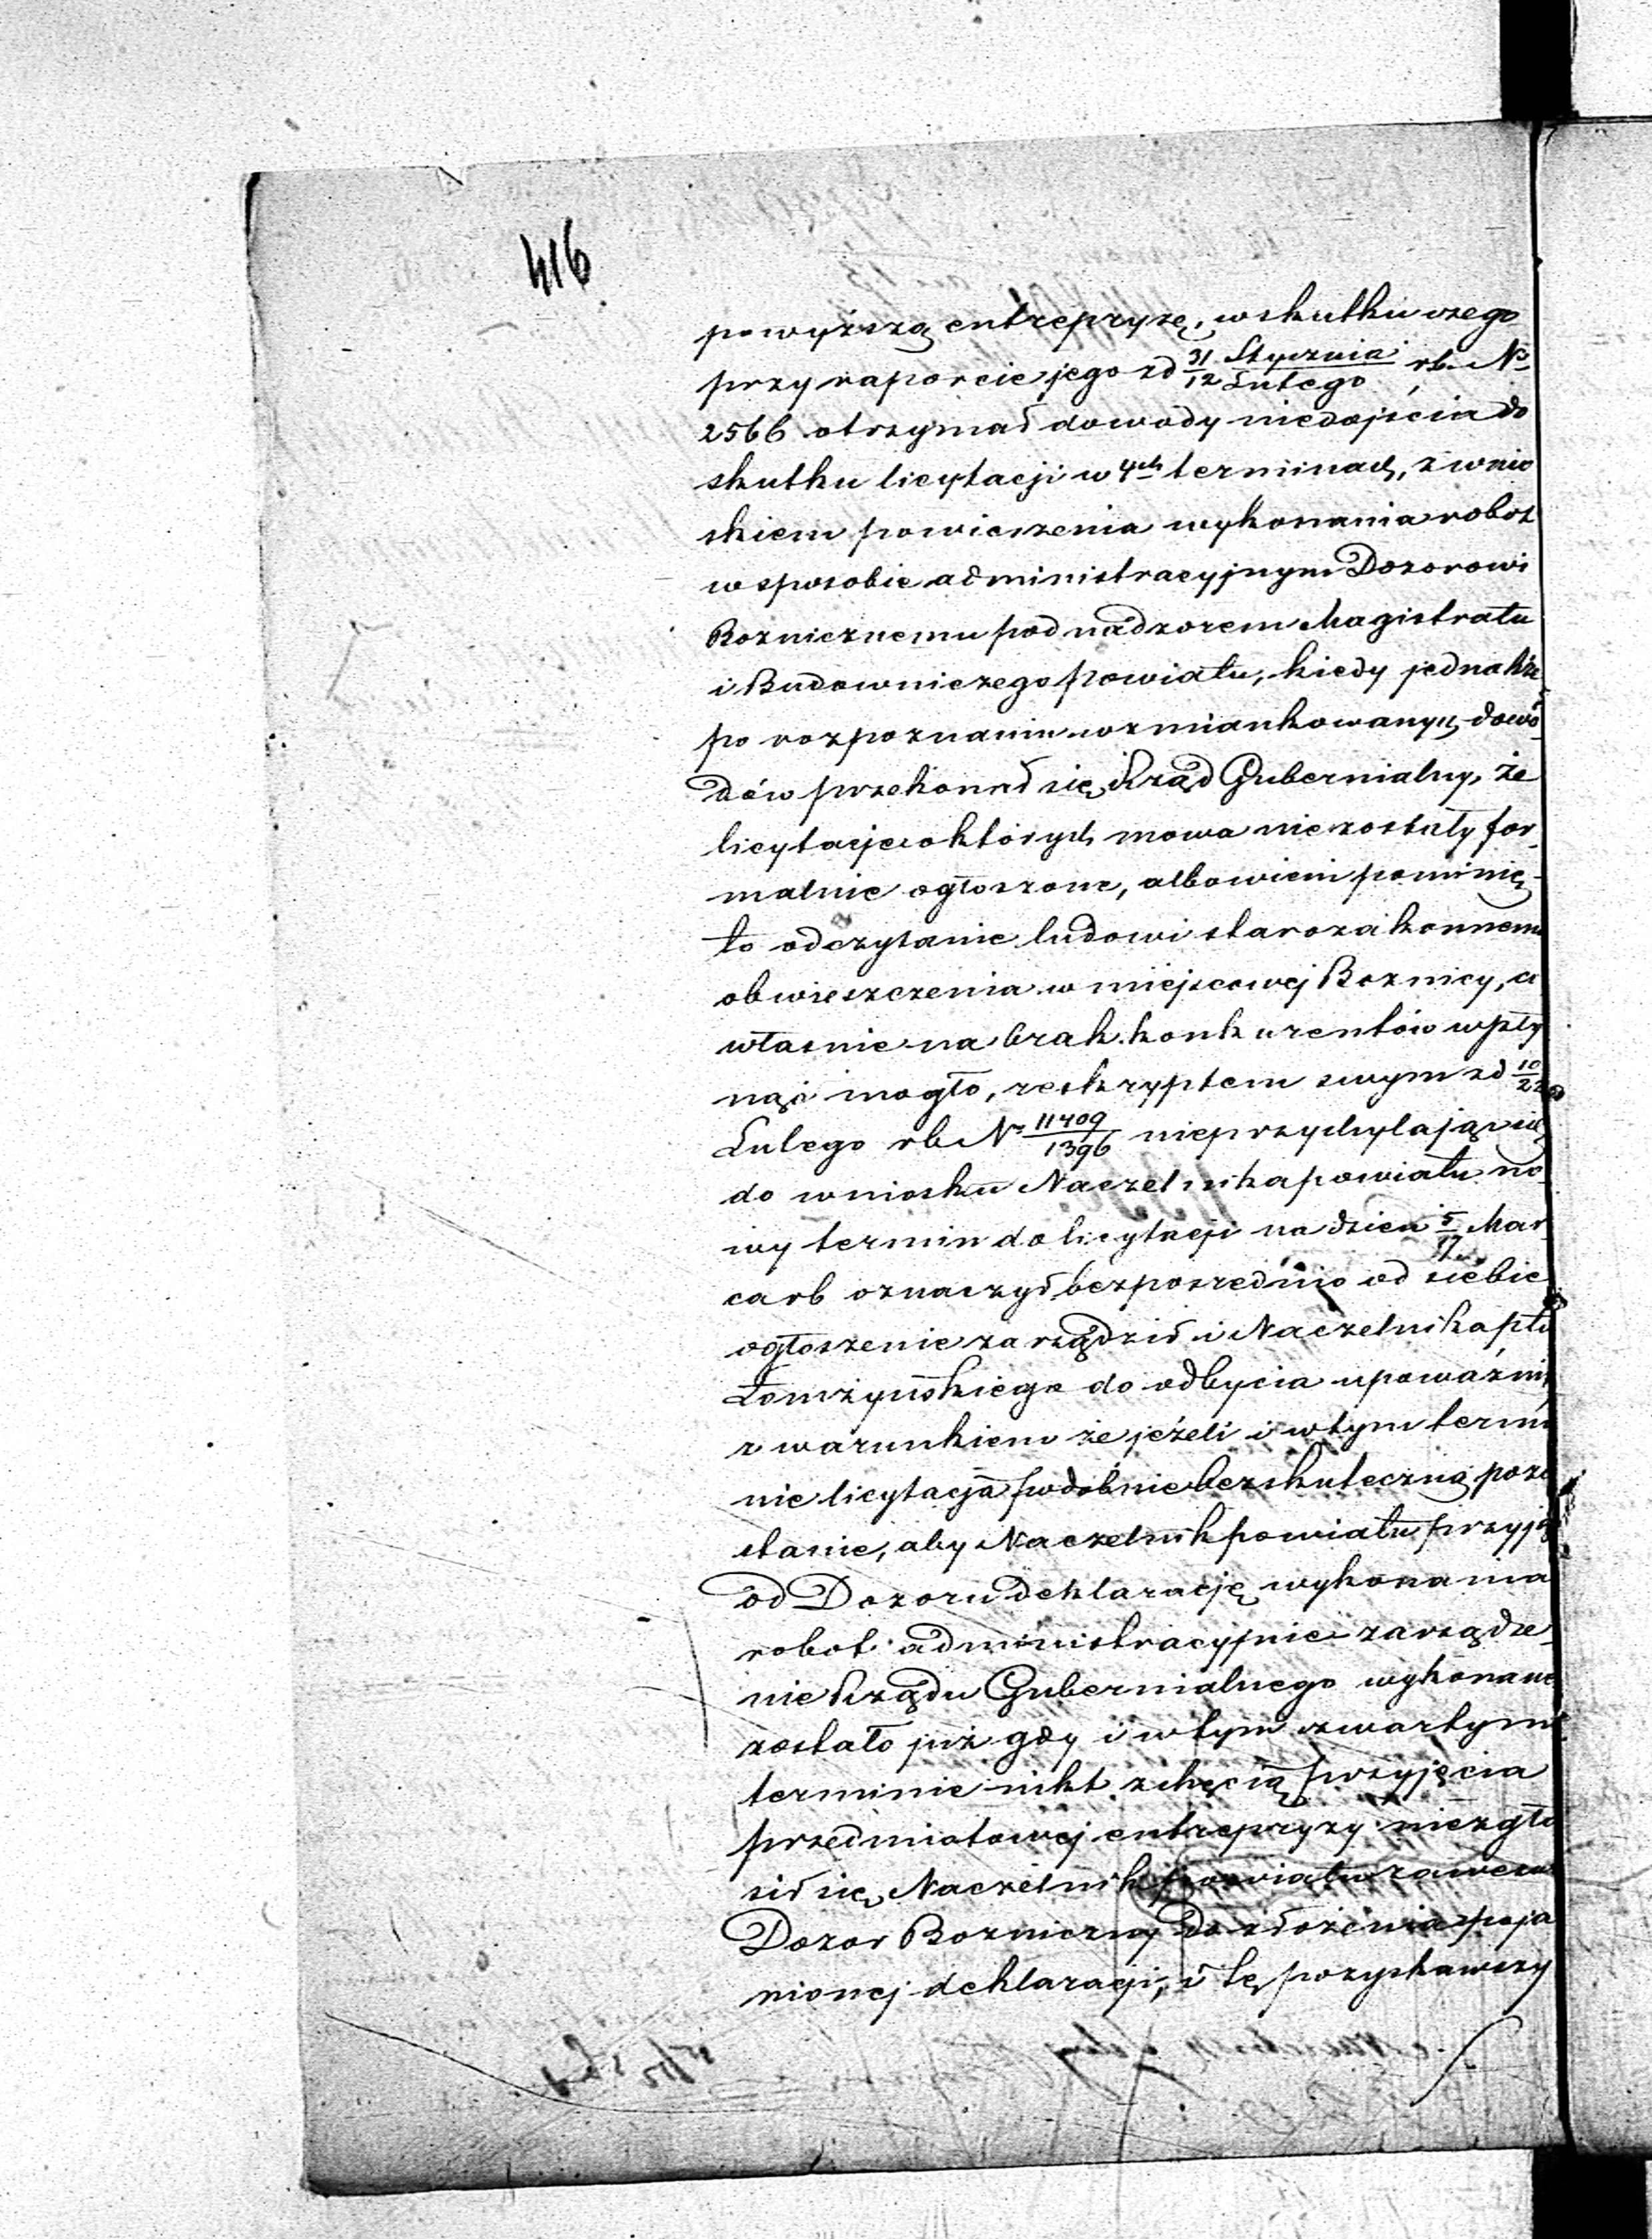 416
powyższą entrepryzę, wskutku czego
przy raporcie jego od 31/12 Stycznia/Lutego rb. No
2566 otrzymał dowody niedojścia do
skutku licytacji w 4ch terminach, z wnio
skiem powierzenia wykonania robot
w sposobie administracyjnym Dozorowi
Bozniczemu pod nadzorem Magistratu
i Budowniczego Powiatu, kiedy jednakże
po rozpoznaniu wzmiankowanych dowo
dów przekonał się Rząd Gubernialny, że
licytacje o których mowa nie zostały for_
malnie ogłoszone, albowiem pominię_
to odczytanie ludowi starozakonnemu
obwieszczenia w miejscowej Boznicy, co
własnie na brak konkurentów wpły
nąć mogło, reskryptem swym od 10/22
Lutego rb No 11409/1396 nieprzychylając się
do wniosku Naczelnika powiatu no_
wy termin do licytacji na dzień 5/17 Mar_
ca rb oznaczył bezpośrednio od siebie
ogłoszenie zarządził i Naczelnika ptu
Łomżyńskiego do odbycia upoważnił
z warunkiem że jeżeli i w tym termi
nie licytacja podobnie bezskuteczną pozo
stanie, aby Naczelnik powiatu przyjął
od Dozoru deklarację wykonania
robot administracyjnie zarządze_
nie Rządu Gubernialnego wykonane
zostało już gdy i w tym czwartym
terminie nikt z chęcią przyjęcia
przedmiotowej entrepryzy niezgło
sił się, Naczelnik powiatu zawezwał
Dozor Bozniczny do złożenia poja
nionej deklaracji, i tę pozyskawszy